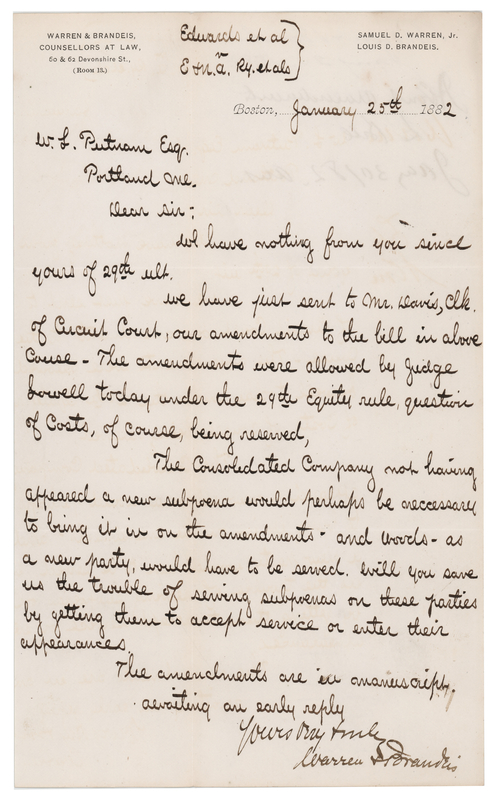 WARREN & BRANDEIS,
COUNSELLORS AT LAW,
60 & 62 Devonshire St.,
(ROOM 15.)
Edwards et al
v
E & N. A. Ry. et als
SAMUEL D. WARREN, Jr.
LOUIS D. BRANDEIS.
Boston, January 25th 1882
W. L. Putnam Esq.
Portland Me.
Dear Sir;
We have nothing from you since
yours of 29th ult.
We have just sent to Mr. Davis, Clk.
of Circuit Court, our amendments to the bill in above
Cause - The amendments were allowed by Judge
Lowell today under the 29th Equity rule, question
of Costs, of course, being reserved,
The Consolidated Company not having
appeared a new subpoena would perhaps be neccessary
to bring it in on the amendments - and Woods - as
a new party, would have to be served. Will you save
us the trouble of serving subpoenas on these parties
by getting them to accept service or enter their
appearances.
The amendments are in manuscript.
Awaiting an early reply
Yours Very truly
Warren & Brandeis